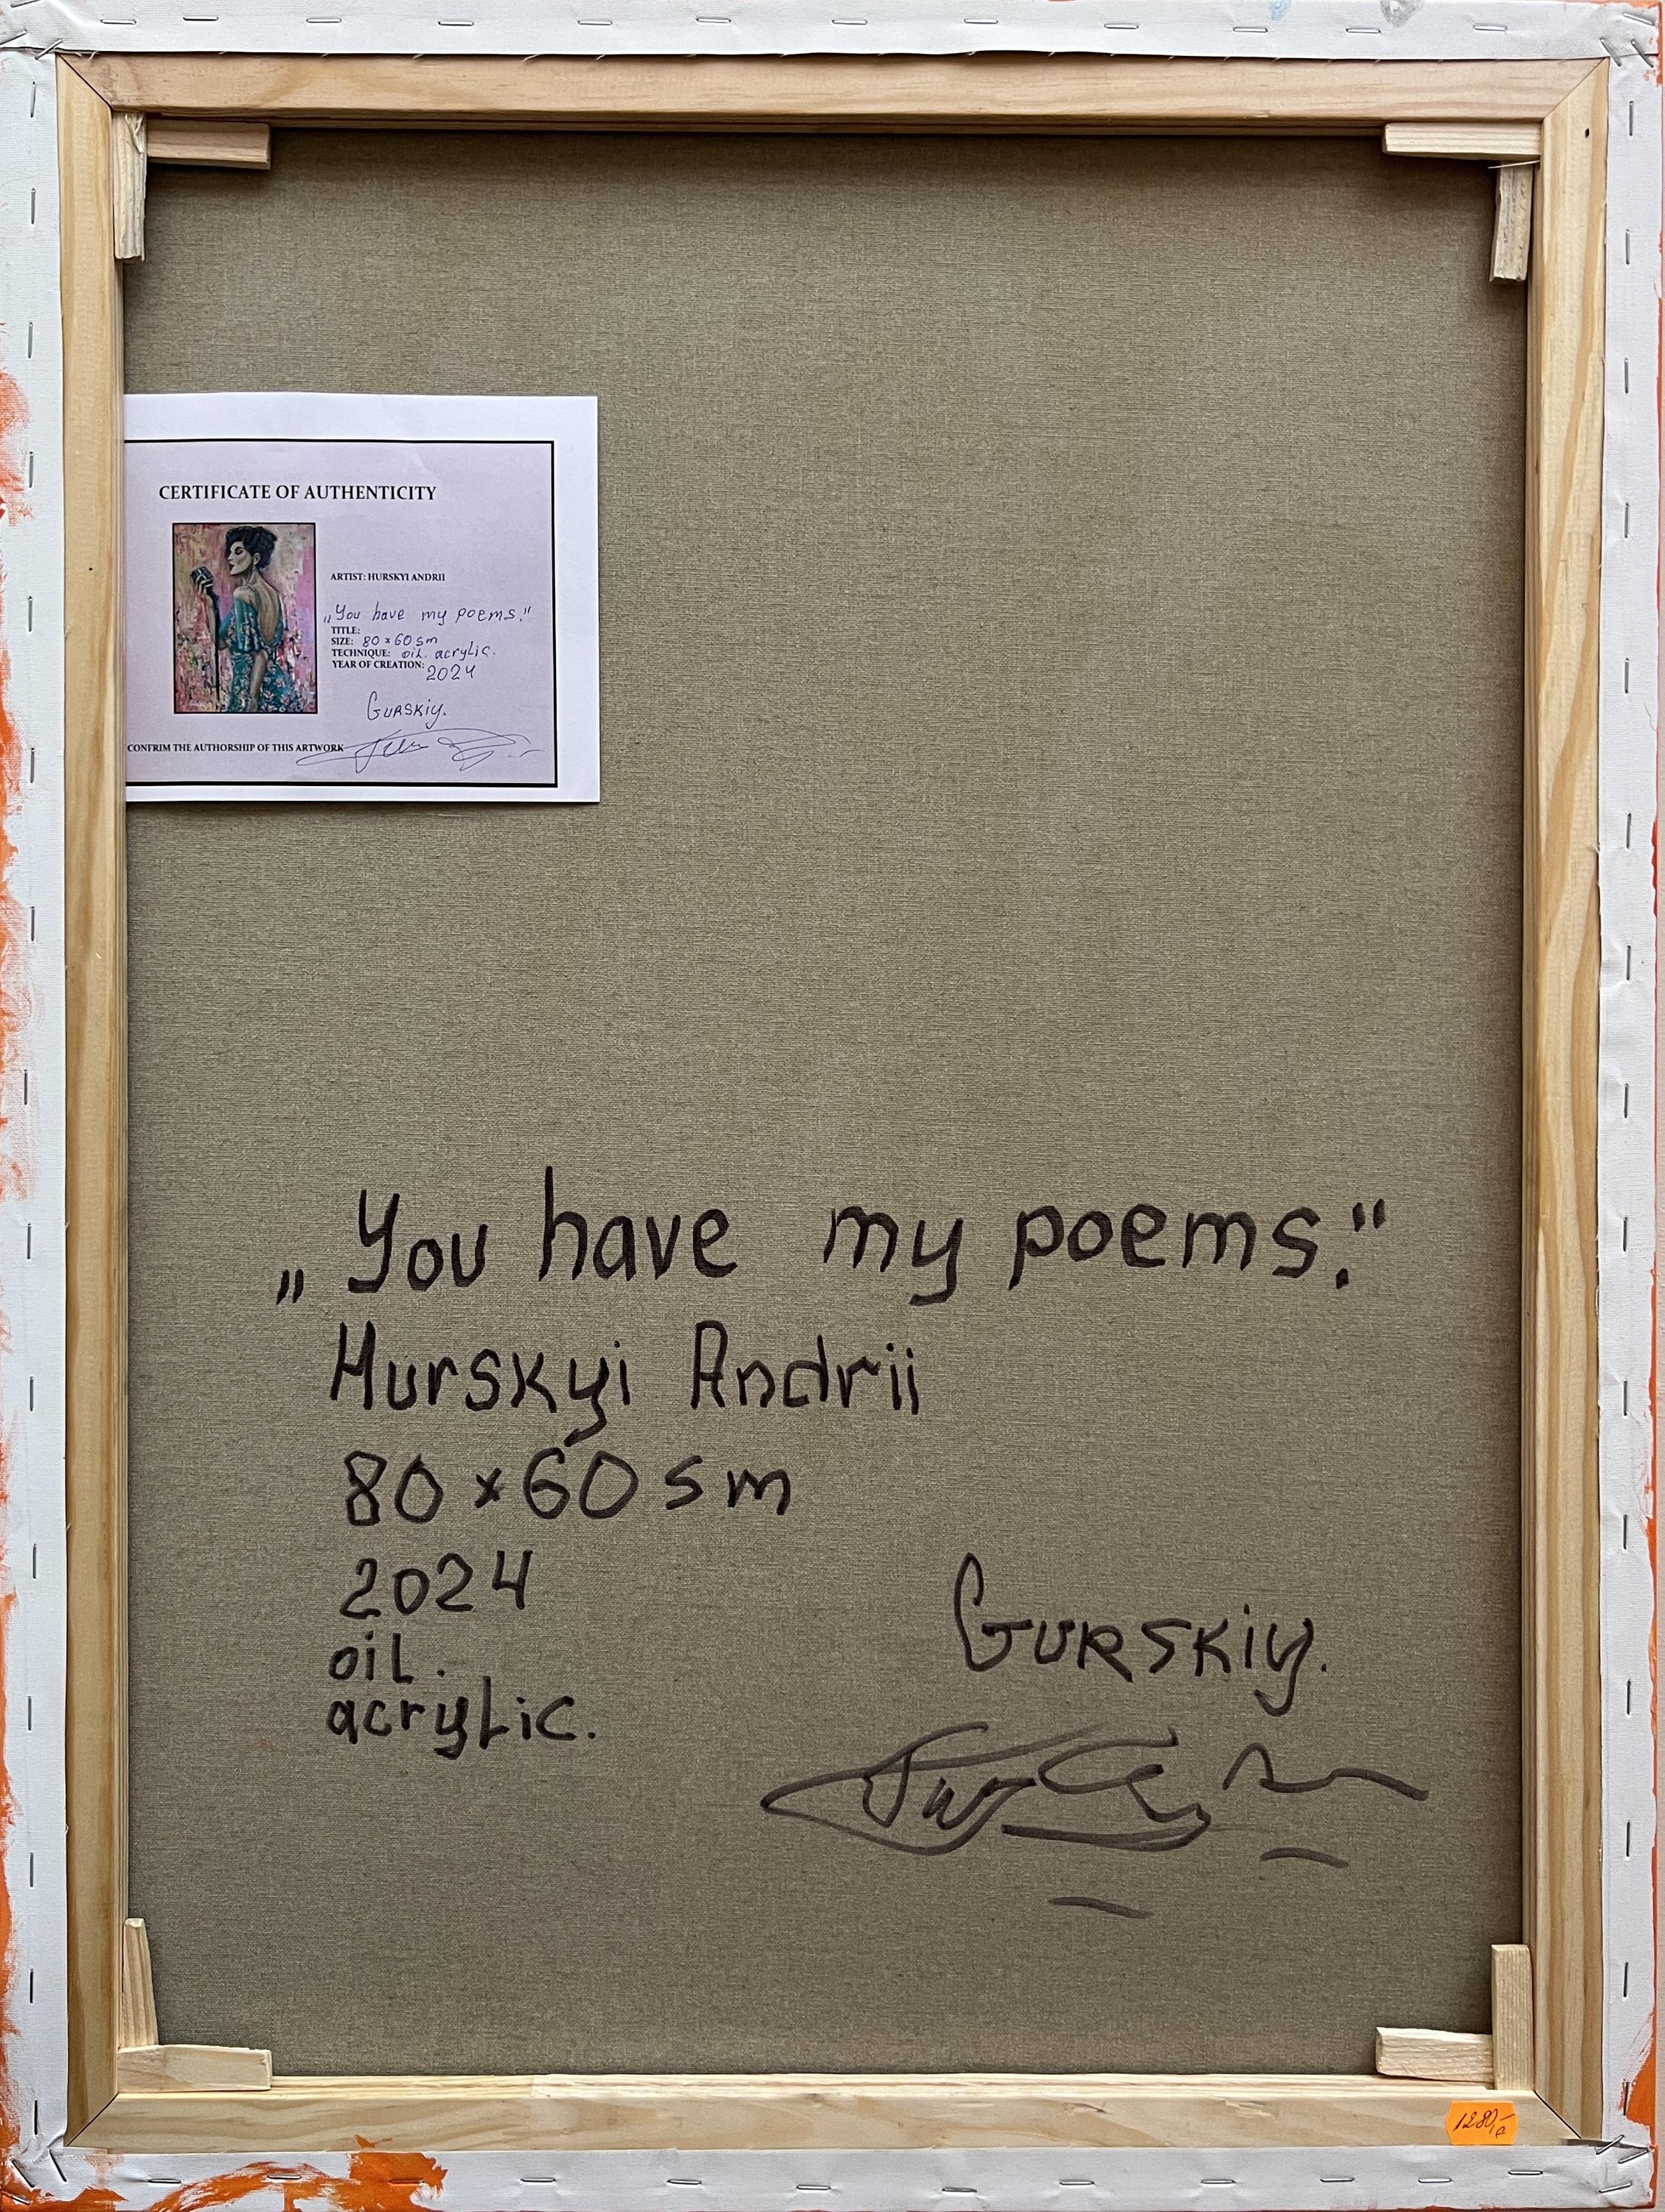 CERTIFICATE OF AUTHENTICITY
ARTIST: HURSKYI ANDRII
„You have my poems."
TITLE:
SIZE: 80 x 60 sm
TECHNIQUE: oil. acrylic.
YEAR OF CREATION: 2024
Gurskiy.
CONFRIM THE AUTHORSHIP OF THIS ARTWORK
„You have my poems."
Hurskyi Andrii
80 x 60 sm
2024
oil.
acrylic.
Gurskiy.
1280,-